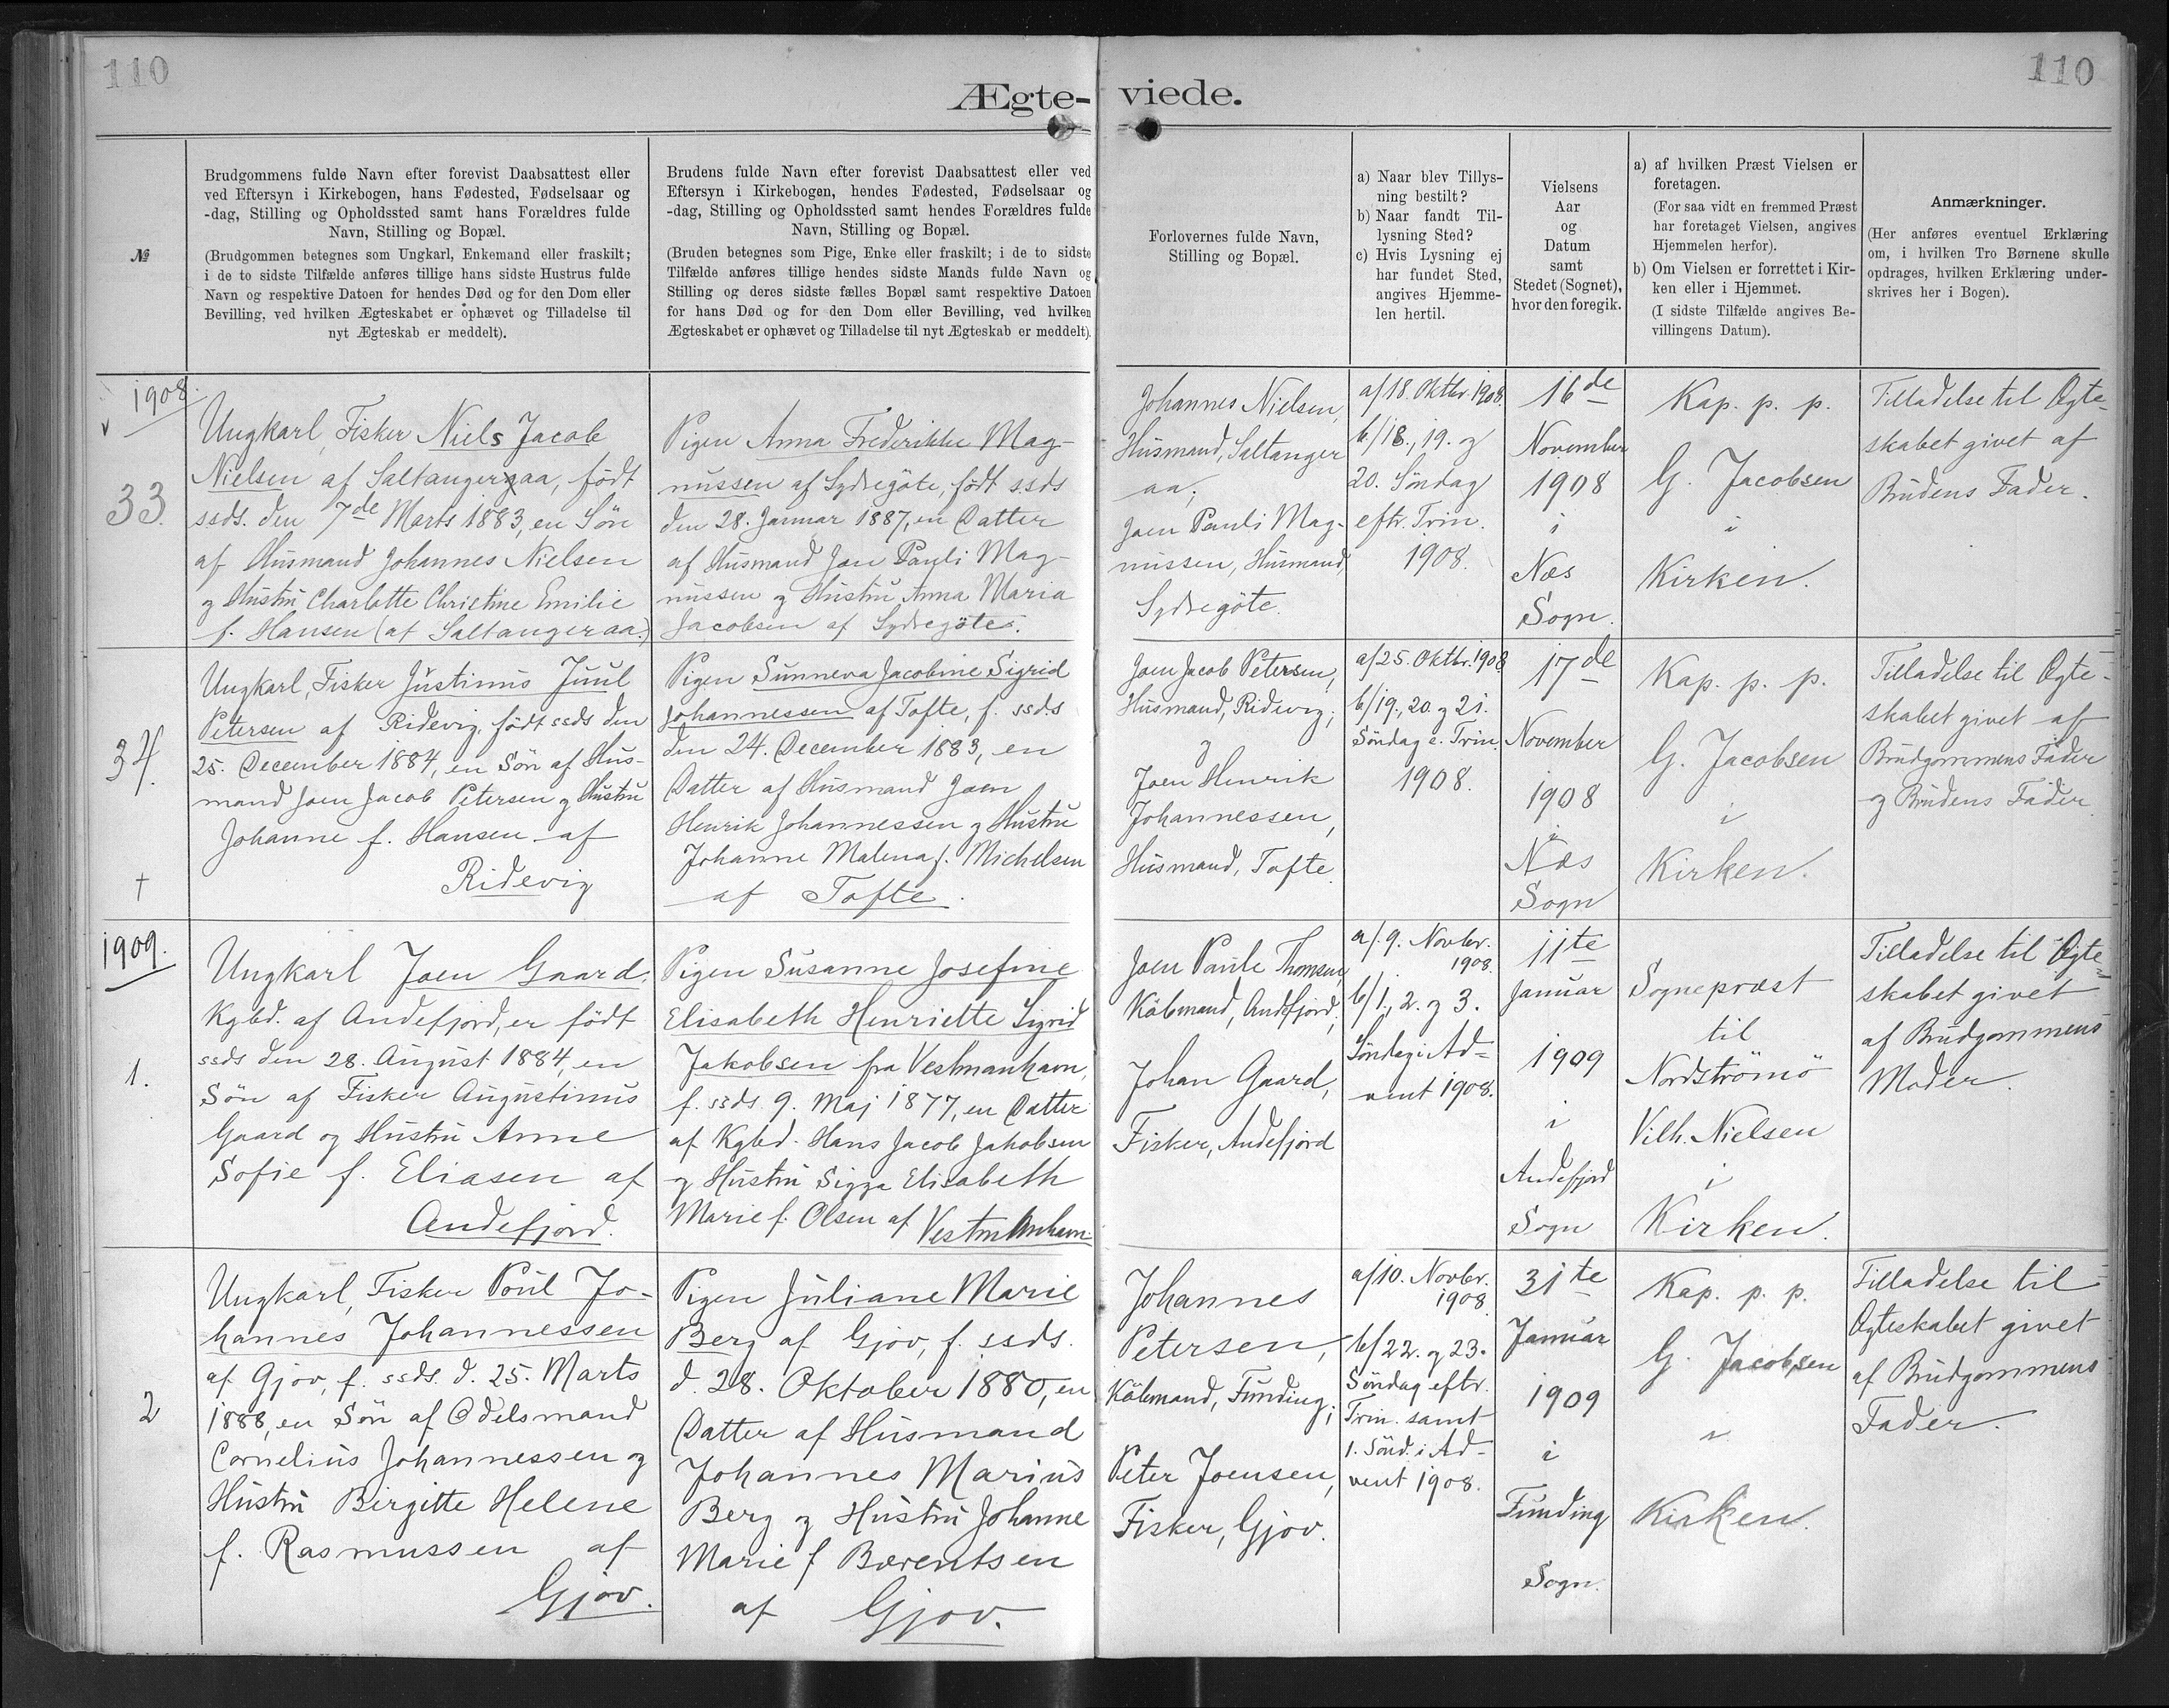 110
110
Ægte-
viede.
№
Brudgommens fulde Navn efter forevist Daabsattest eller
ved Eftersyn i Kirkebogen, hans Fødested, Fødselsaar og
-dag, Stilling og Opholdssted samt hans Forældres fulde
Navn, Stilling og Bopæl.
(Brudgommen betegnes som Ungkarl, Enkemand eller fraskilt;
i de to sidste Tilfælde anføres tillige hans sidste Hustrus fulde
Navn og respektive Datoen for hendes Død og for den Dom eller
Bevilling, ved hvilken Ægteskabet er ophævet og Tilladelse til
nyt Ægteskab er meddelt).
Brudens fulde Navn efter forevist Daabsattest eller ved
Eftersyn i Kirkebogen, hendes Fødested, Fødselsaar og
-dag, Stilling og Opholdssted samt hendes Forældres fulde
Navn, Stilling og Bopæl.
(Bruden betegnes som Pige, Enke eller fraskilt; i de to sidste
Tilfælde anføres tillige hendes sidste Mands fulde Navn og
Stilling og deres sidste fælles Bopæl samt respektive Datoen
for hans Død og for den Dom eller Bevilling, ved hvilken
Ægteskabet er ophævet og Tilladelse til nyt Ægteskab er meddelt).
Forlovernes fulde Navn,
Stilling og Bopæl.
a) Naar blev Tillys-
ning bestilt?
b) Naar fandt Til-
lysning Sted?
c) Hvis Lysning ej
har fundet Sted,
angives Hjemme-
len hertil.
Vielsens
Aar
og
Datum
samt
Stedet (Sognet),
hvor den foregik.
a) af hvilken Præst Vielsen er
foretagen.
(For saa vidt en fremmed Præst
har foretaget Vielsen, angives
Hjemmelen herfor).
b) Om Vielsen er forrettet i Kir-
ken eller i Hjemmet.
(I sidste Tilfælde angives Be-
villingens Datum).
Anmærkninger.
(Her anføres eventuel Erklæring
om, i hvilken Tro Børnene skulle
opdrages, hvilken Erklæring under-
skrives her i Bogen).
1908.
33.
Ungkarl, Fisker Niels Jacob
Nielsen af Saltangeraa, født
ssds. den 7de Marts 1883, en Søn
af Husmand Johannes Nielsen
og Hustru Charlotte Christine Emilie
f. Hansen (af Saltangeraa.)
Pigen Anna Frederikke Mag-
nussen af Sydregöte, født ssds
den 28. Januar 1887, en Datter
af Husmand Jon Pauli Mag-
nussen og Hustru Anna Maria
Jacobsen af Sydregöte.
Johannes Nielsen,
Husmand, Saltanger
aa;
Joen Pauli Mag-
nussen, Husmand,
Sydregöte.
a/18. Oktbr. 1908.
b/18., 19. og
20. Söndag
eftr. Trin.
1908.
16de
November
1908
i
Næs
Sogn.
Kap. p. p.
G. Jacobsen
i
Kirken.
Tilladelse til Ægte-
skabet givet af
Brudens Fader.
34.
†
Ungkarl, Fisker Justinus Juul
Petersen af Ridevig, født ssds den
25. December 1884, en Søn af Hus-
mand Joen Jacob Petersen og Hustru
Johanne f. Hansen af
Ridevig
Pigen Sunneva Jacobine Sigrid
Johannessen af Tofte, f. ssds
den 24. December 1883, en
Datter af Husmand Joen
Henrik Johannessen og Hustru
Johanne Malena f. Michelsen
af Tofte.
Joen Jacob Petersen,
Husmand, Ridevig;
og
Joen Henrik
Johannessen,
Husmand, Tofte.
a/25. Oktbr. 1908
b/19., 20. og 21.
Söndag e. Trin.
1908.
17de
November
1908
i
Næs
Sogn
Kap. p. p.
G. Jacobsen
i
Kirken.
Tilladelse til Ægte-
skabet givet af
Brudgommens Fader
og Brudens Fader.
1909.
1.
Ungkarl Joen Gaard,
Kgbd. af Andefjord, er født
ssds den 28. August 1884, en
Søn af Fisker Augustinus
Gaard og Hustru Anne
Sofie f. Eliasen af
Andefjord.
Pigen Susanne Josefine
Elisabeth Henriette Sigrid
Jakobsen fra Vestmanhavn,
f. ssds. 9. Maj 1877, en Datter
af Kgbd. Hans Jacob Jakobsen
og Hustru Sigga Elisabeth
Marie f. Olsen af Vestmanhavn.
Joen Paule Thomsen,
Köbmand, Andefjord;
Johan Gaard,
Fisker, Andefjord
a/. 9. Novbr.
1908.
b/1., 2. og 3.
Söndag i Ad-
vent 1908.
11te
Januar
1909
i
Andefjord
Sogn
Sognepræst
til
Nordströmö
Vilh. Nielsen
i
Kirken.
Tilladelse til Ægte-
skabet givet
af Brudgommens
Moder.
2
Ungkarl, Fisker Poul Jo-
hannes Johannessen
af Gjov, f. ssds. d. 25. Marts
1888, en Søn af Odelsmand
Cornelius Johannessen og
Hustru Birgitte Helene
f. Rasmussen af
Gjov.
Pigen Juliane Marie
Berg af Gjov, f. ssds.
d. 28. Oktober 1880, en
Datter af Husmand
Johannes Marius
Berg og Hustru Johanne
Marie f Bærentsen
af Gjov.
Johannes
Petersen,
Köbmand, Funding;
Peter Joensen,
Fisker, Gjov.
a/10. Novbr.
1908.
b/22. og 23.
Söndag eftr.
Trin. samt
1. Sönd. i Ad-
vent 1908.
31te
Januar
1909
i
Funding
Sogn.
Kap. p. p.
G. Jacobsen
i
Kirken.
Tilladelse til
Ægteskabet givet
af Brudgommens
Fader.